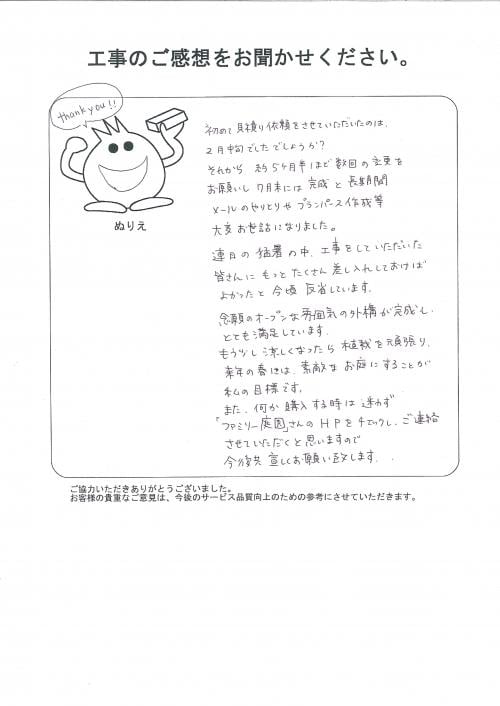 工事のご感想をお聞かせください。
thank you!!
ぬりえ
初めて見積り依頼をさせていただいたのは、
2月中旬でしたでしょうか?
それから 約5ヶ月半ほど数回の変更を
お願いし 7月末には完成と長期間
メールのやりとりや プランパース作成等
大変お世話になりました。
連日の猛暑の中、工事をしていただいた
皆さんに もっと たくさん 差し入れしておけば
よかったと 今頃 反省しています。
念願のオープンな雰囲気の外構が完成し、
とても満足しています。
もう少し涼しくなったら 植栽を頑張り、
来年の春には、素敵な お庭にすることが
私の目標です。
また、何か購入する時は迷わず
「ファミリー庭園」さんの HPをチェックし、ご連絡
させていただくと思いますので
今後共 宜しくお願い致します。
ご協力いただきありがとうございました。
お客様の貴重なご意見は、今後のサービス品質向上のための参考にさせていただきます。